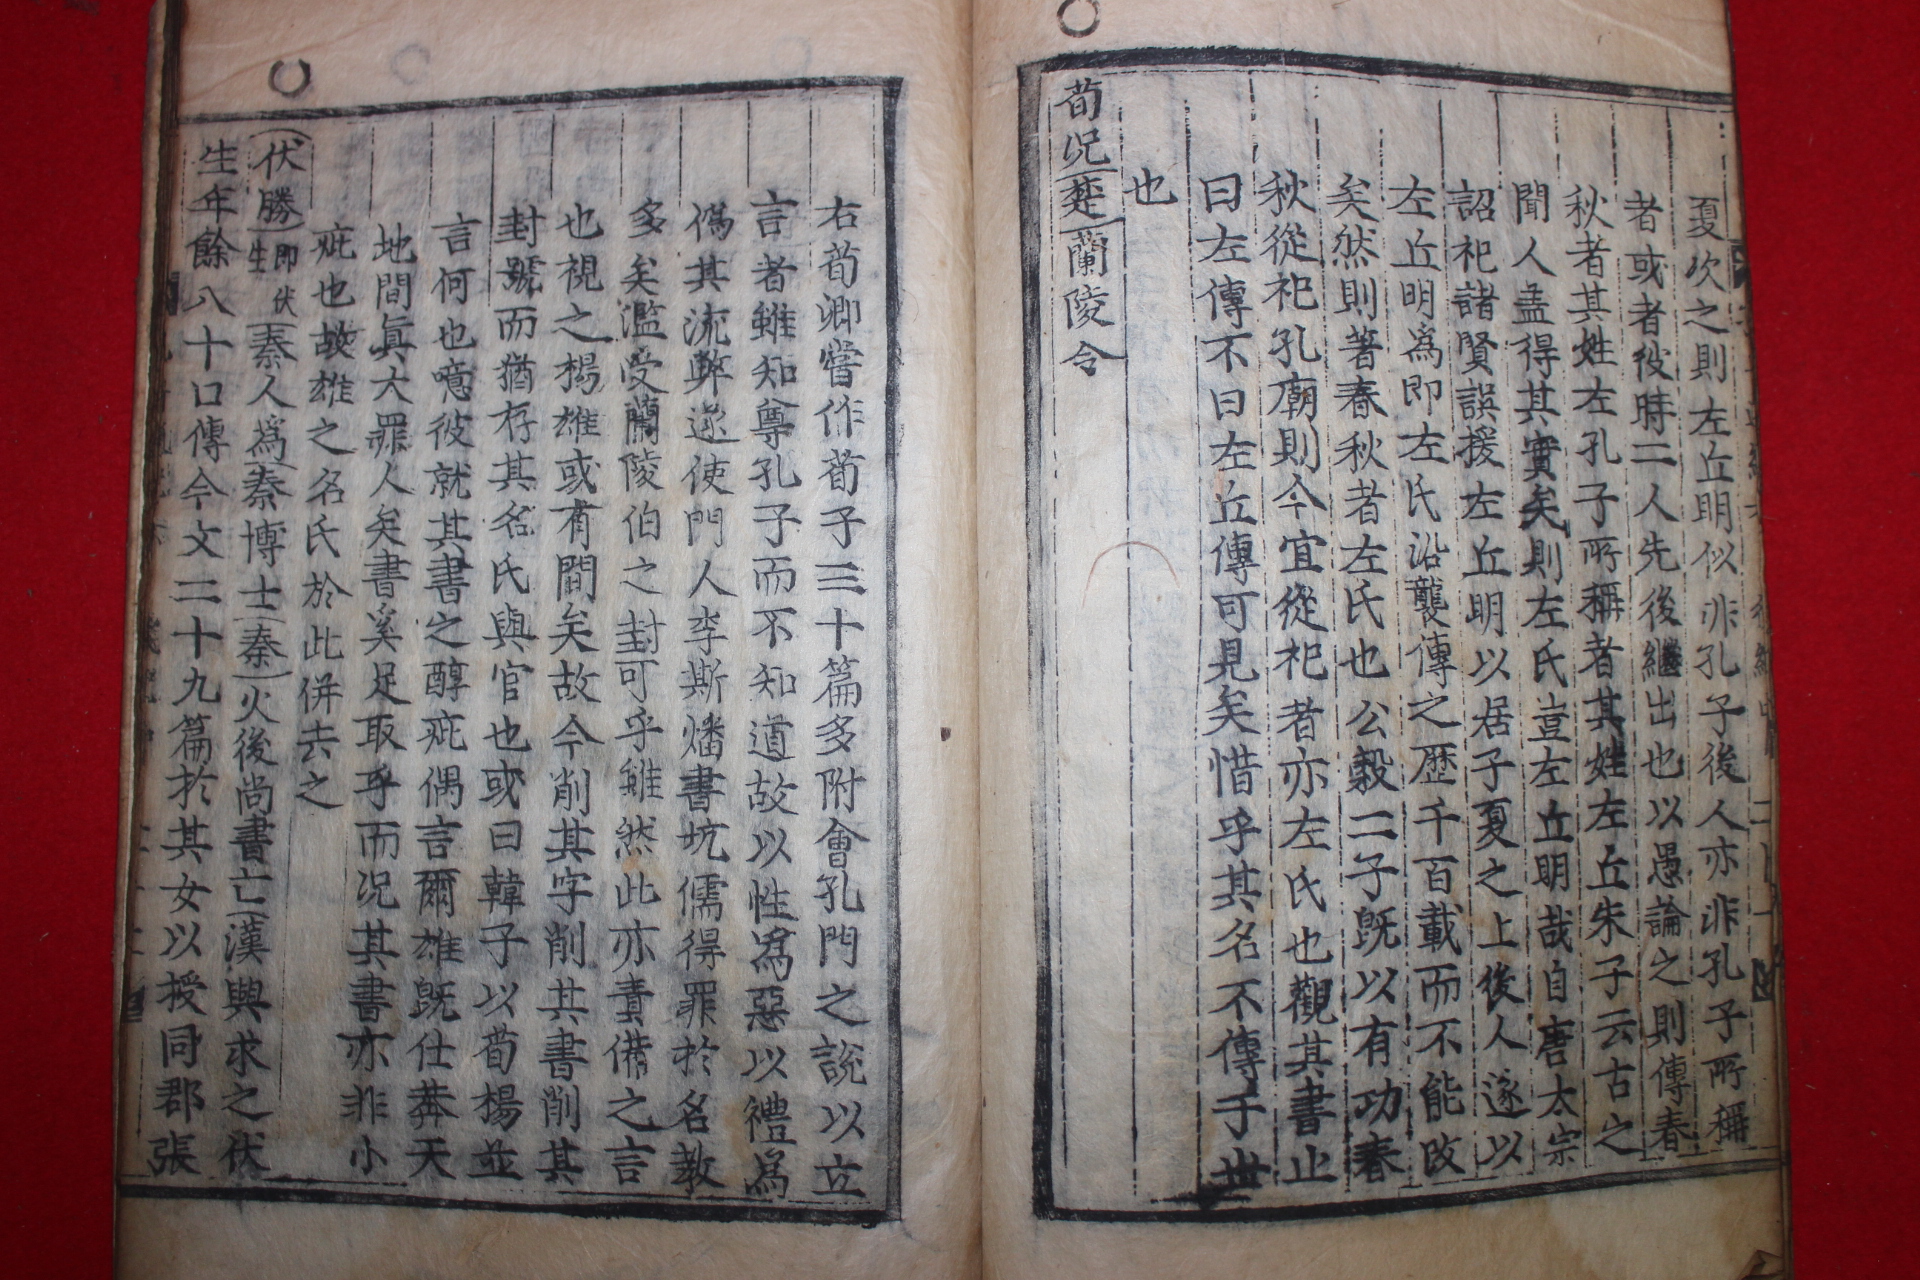 夏次之則左丘明似非孔子後人亦非孔子所稱
者或者彼時二人先後繼出也以愚論之則傳春
秋者其姓左孔子所稱者其姓左丘朱子云古之
聞人盖得其實矣則左氏豈左丘明哉自唐太宗
詔祀諸賢誤援左丘明以居子夏之上後人遂以
左丘明爲即左氏沿襲傳之歷千百載而不能改
矣然則著春秋者左氏也公穀二子旣以有功春
秋從祀孔廟則今宜從祀者亦左氏也觀其書止
曰左傳不曰左丘傳可見矣惜乎其名不傳于世
也
荀況楚蘭陵令
右荀卿嘗作荀子三十篇多附會孔門之說以立
言者雖知尊孔子而不知道故以性爲惡以禮爲
僞其流弊遂使門人李斯燔書坑儒得罪於名敎
多矣濫受蘭陵伯之封可乎雖然此亦責備之言
也視之楊雄或有間矣故今削其字削其書削其
封號而猶存其名氏與官也或曰韓子以荀楊並
言何也噫彼就其書之醇疵偶言爾雄旣仕莽天
地間眞大罪人矣書奚足取乎而况其書亦非小
疵也故雄之名氏於此併去之
伏勝即伏生秦人爲秦博士秦火後尚書亡漢興求之伏
生年餘八十口傳今文二十九篇於其女以授同郡張